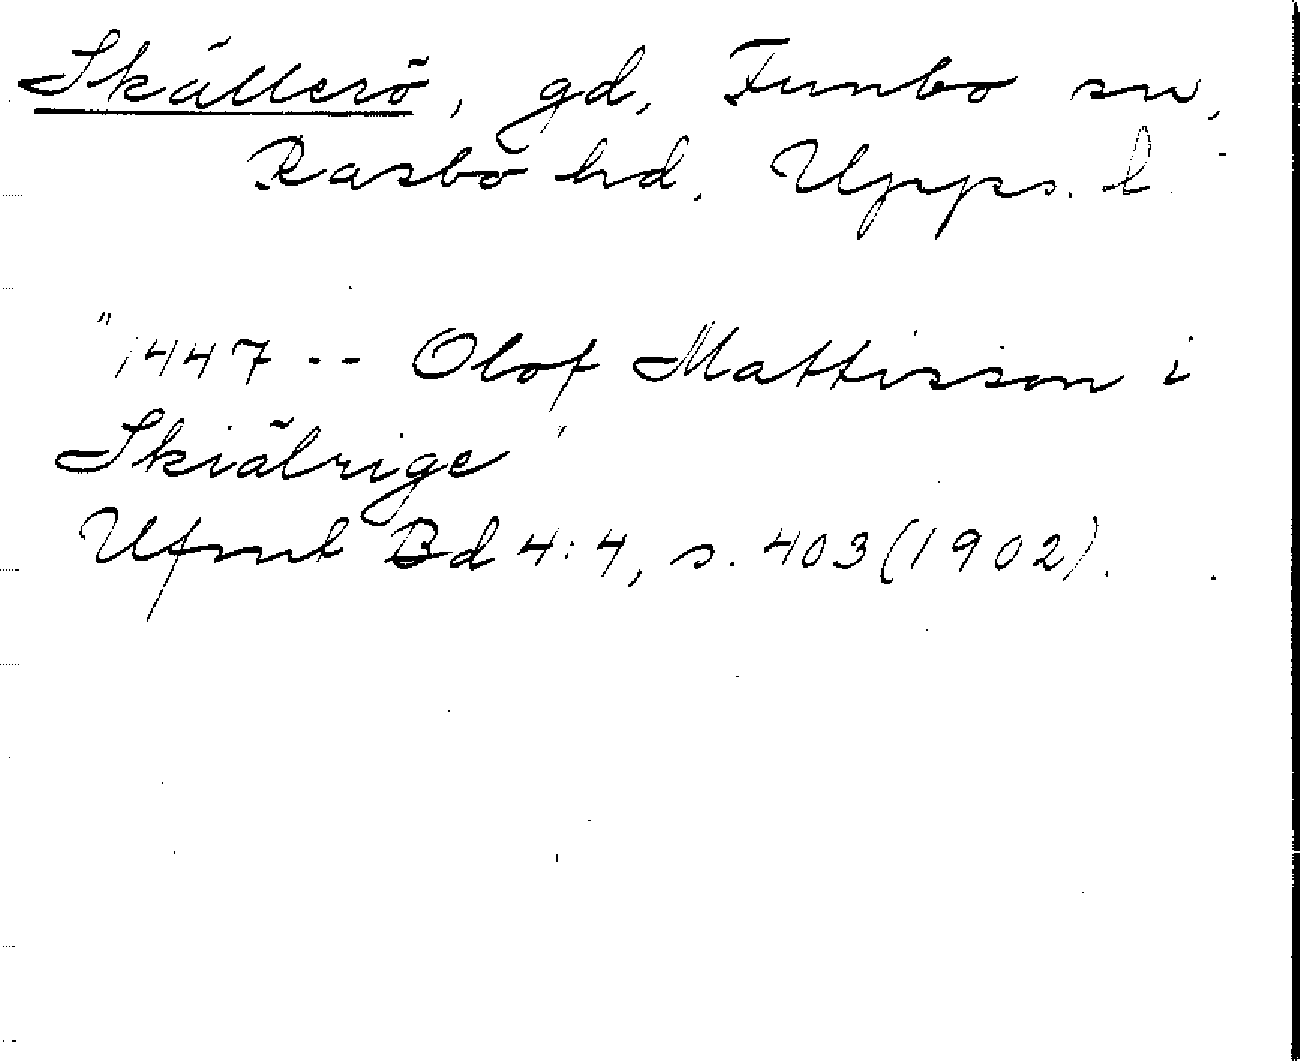 Skällerö, gd, Funbo sn,
Rasbo hd. Upps. l.
"1447 -- Olof Mattisson i
Skiälrige"
Ufmt Bd 4:4, s. 403 (1902).